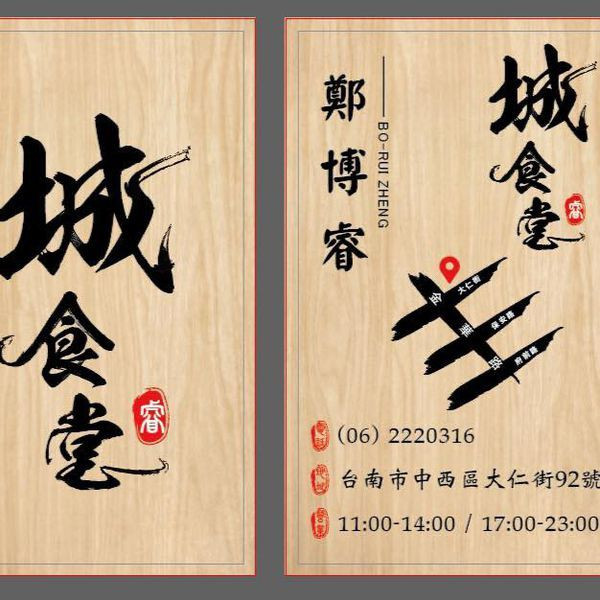 城食堂
睿
鄭博睿
BO-RUI ZHENG
城食堂
睿
大仁街
保安路
府前路
金華路
電話
(06) 2220316
地址
台南市中西區大仁街92號
營業
11:00-14:00 / 17:00-23:00